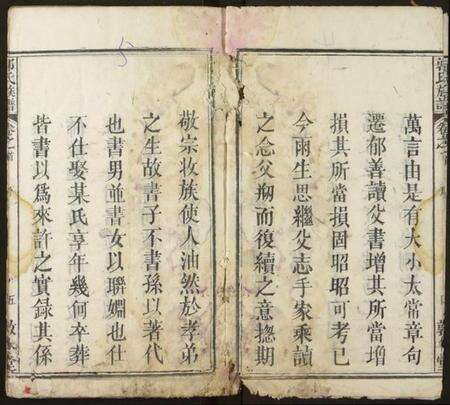 郭氏族譜 卷之首
萬言由是有大小太常章句
遷郁善讀父書增其所當增
損其所當損固昭昭可考已
今雨生思繼父志手家乘
之念父刱而復續之意揔期
敬宗牧族使人油然於孝弟
之生故書子不書孫以著代
也書男並書女以聨婣也仕
不仕娶某氏享年幾何卒葬
皆書以爲來許之實録其係
郭氏族譜 卷之首 五 敦